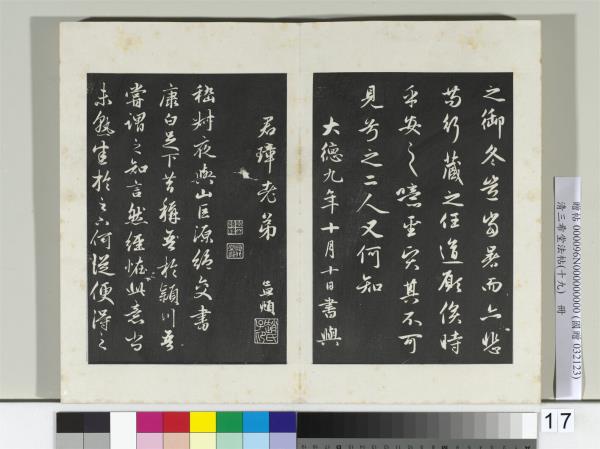 之御冬豈當暑而亦悲
苟行藏之任道願俟時
乎安之噫聖賢其不可
見兮之二人又何知
大德九年十月十日書與
君璋老弟
孟頫
嵇叔夜與山巨源絕交書
康白足下昔稱吾於潁川吾
嘗謂之知言然經怪此意尚
未熟悉於足下何從便得之
贈帖 000096N000000000 (國贈 032123)
清三希堂法帖(十九) 冊
17